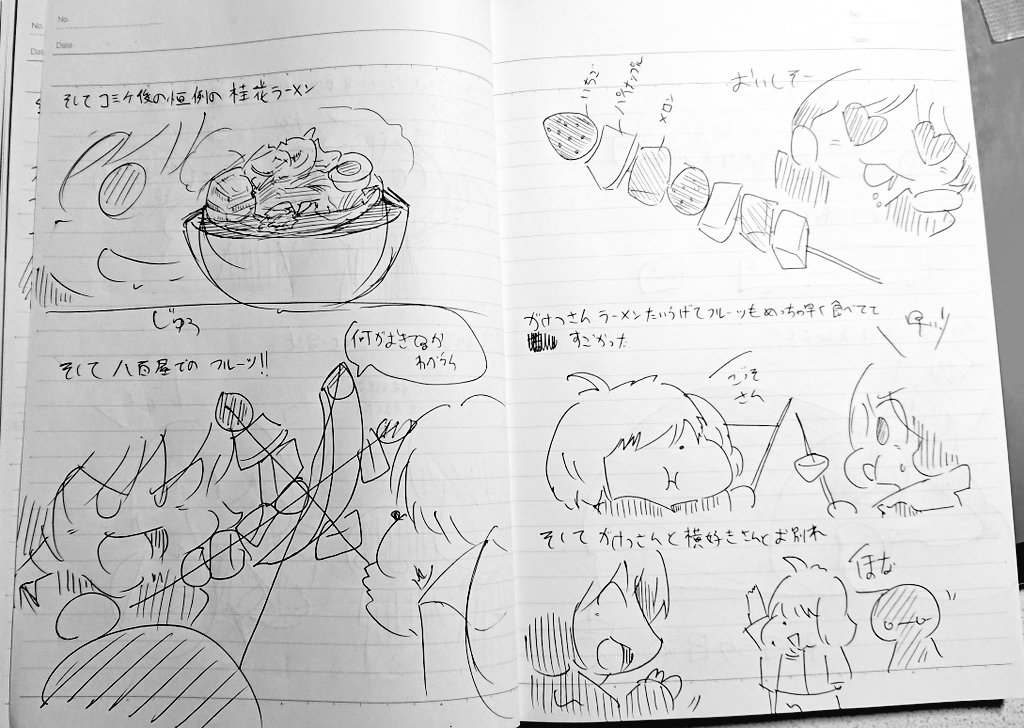 No.
Date
そして コミケ後の恒例の 桂花ラーメン
じゅる
そして 八百屋での フルーツ!!
何がおきてるか
わからん
No.
Date
いちご
パイナップル
メロン
おいしそー
がけっさん ラーメンたいらげてフルーツもめっちゃ早く食べてて
すごかった
ごっそ
さん
そして がけっさんと横好きさんとお別れ
ほな